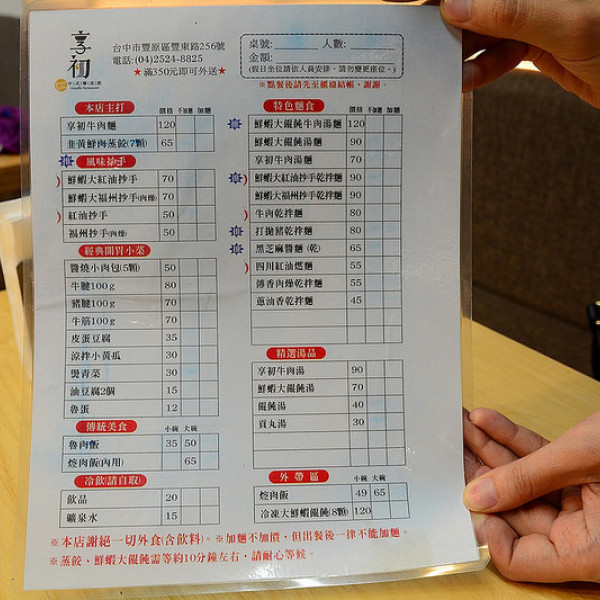 享初
台中市豐原區豐東路256號
電話:(04)2524-8825
★滿350元即可外送★
桌號:______ 人數:______
金額:______
(假日坐位請依人員安排,請勿變更座位。)
※點餐後請先至櫃檯結帳,謝謝。
本店主打 價格 不加麵 加麵
享初牛肉麵 120
韭黃鮮肉蒸餃(7顆) 65
風味抄手
鮮蝦大紅油抄手 70
鮮蝦大福州抄手(肉燥) 70
紅油抄手 50
福州抄手(肉燥) 50
經典開胃小菜
醬燒小肉包(5顆) 50
牛腱100g 80
豬腱100g 70
牛筋100g 70
皮蛋豆腐 35
涼拌小黃瓜 30
燙青菜 30
油豆腐2個 15
魯蛋 12
傳統美食 小碗 大碗
魯肉飯 35 50
焢肉飯(內用) 65
冷飲(請自取)
飲品 20
礦泉水 15
特色麵食 價格 不加麵 加麵
鮮蝦大餛飩牛肉湯麵 120
鮮蝦大餛飩湯麵 90
享初牛肉湯麵 70
鮮蝦大紅油抄手乾拌麵 90
鮮蝦大福州抄手乾拌麵 90
牛肉乾拌麵 80
打拋豬乾拌麵 80
黑芝麻醬麵 (乾) 65
四川紅油燃麵 55
傳香肉燥乾拌麵 55
蔥油香乾拌麵 45
精選湯品
享初牛肉湯 90
鮮蝦大餛飩湯 70
餛飩湯 40
貢丸湯 30
外帶區 小碗 大碗
焢肉飯 49 65
冷凍大鮮蝦餛飩(8顆) 120
※本店謝絕一切外食(含飲料)。※加麵不加價,但出餐後一律不能加麵。
※蒸餃、鮮蝦大餛飩需等約10分鐘左右,請耐心等候。